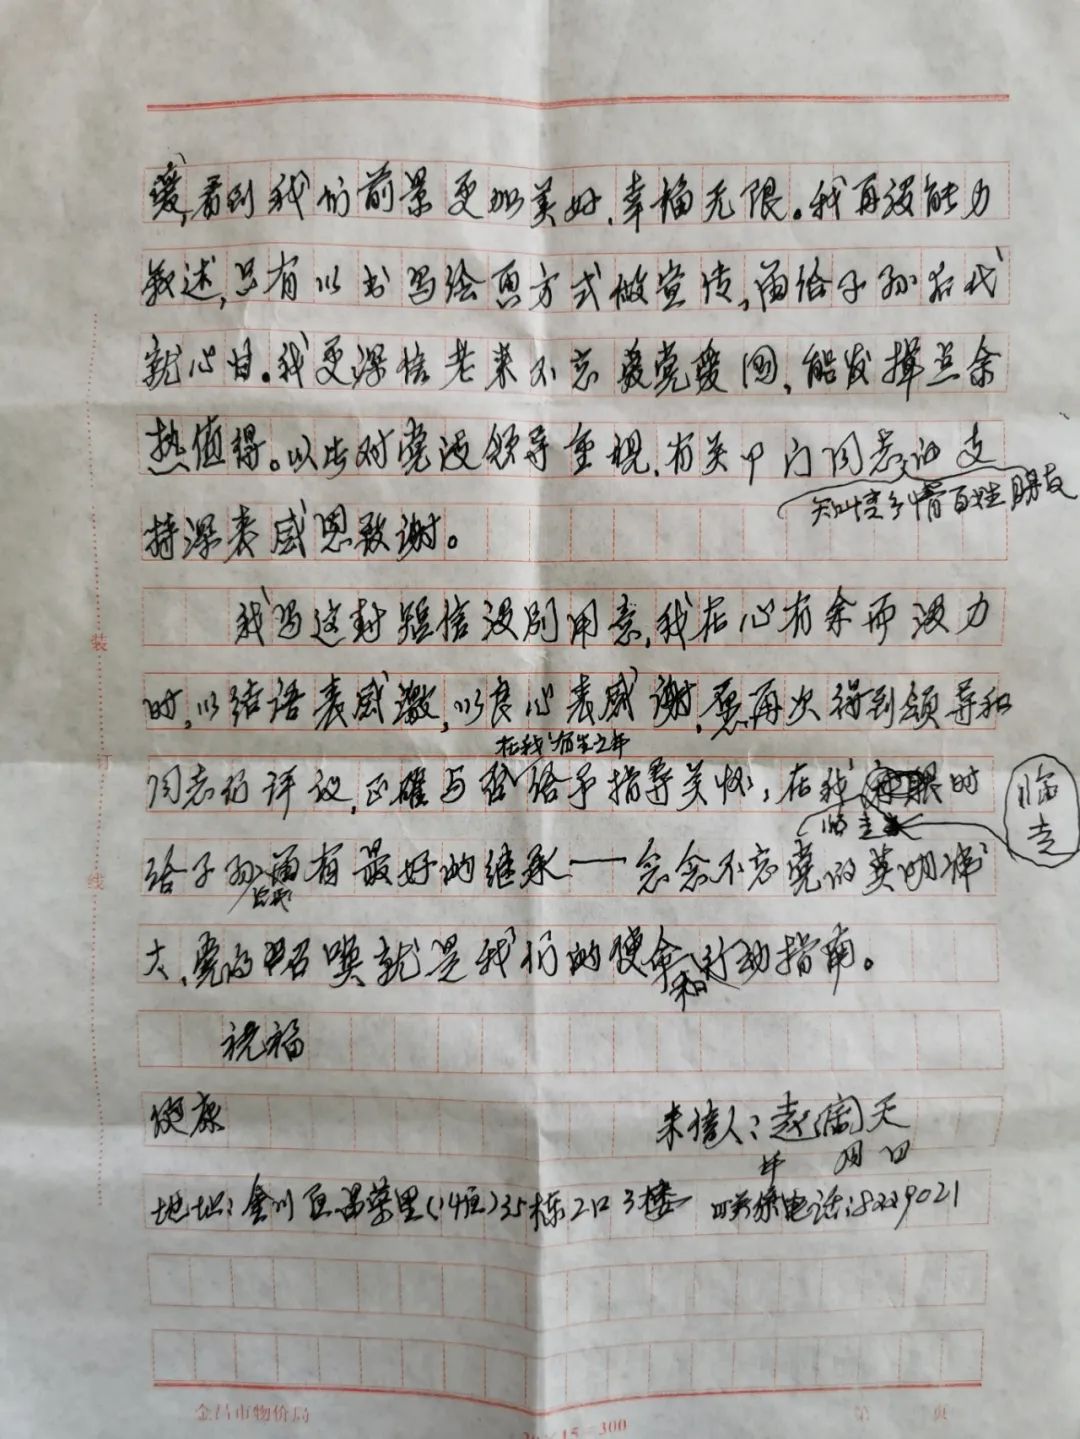 暖,看到我们前景更加美好,幸福无限。我再没能力
叙述,只有以书写绘画方式做宣传,留给子孙后代
就心甘。我更深信老来不忘爱党爱国,能发挥点余
热值得。以此对党政领导重视,有关部门同志的支
知情百姓朋友
持深表感恩致谢。
我写这封短信没别用意,我在心有余而没力
时,以结语表感激,以良心表感谢,愿再次得到领导和
在我有生之年
同志们评议,正确与否给予指导关怀,在我时
临走
临走
给子孙留有最好的继承——念念不忘党的英明伟
后代
大,党的召唤就是我们的使命行动指南。
和
祝福
健康
来信人:赵国天
年 月 日
地址:金川区昌荣里(14区)35栋2口3楼 联系电话:8229021
装
订
线
金昌市物价局
第 页
15=300